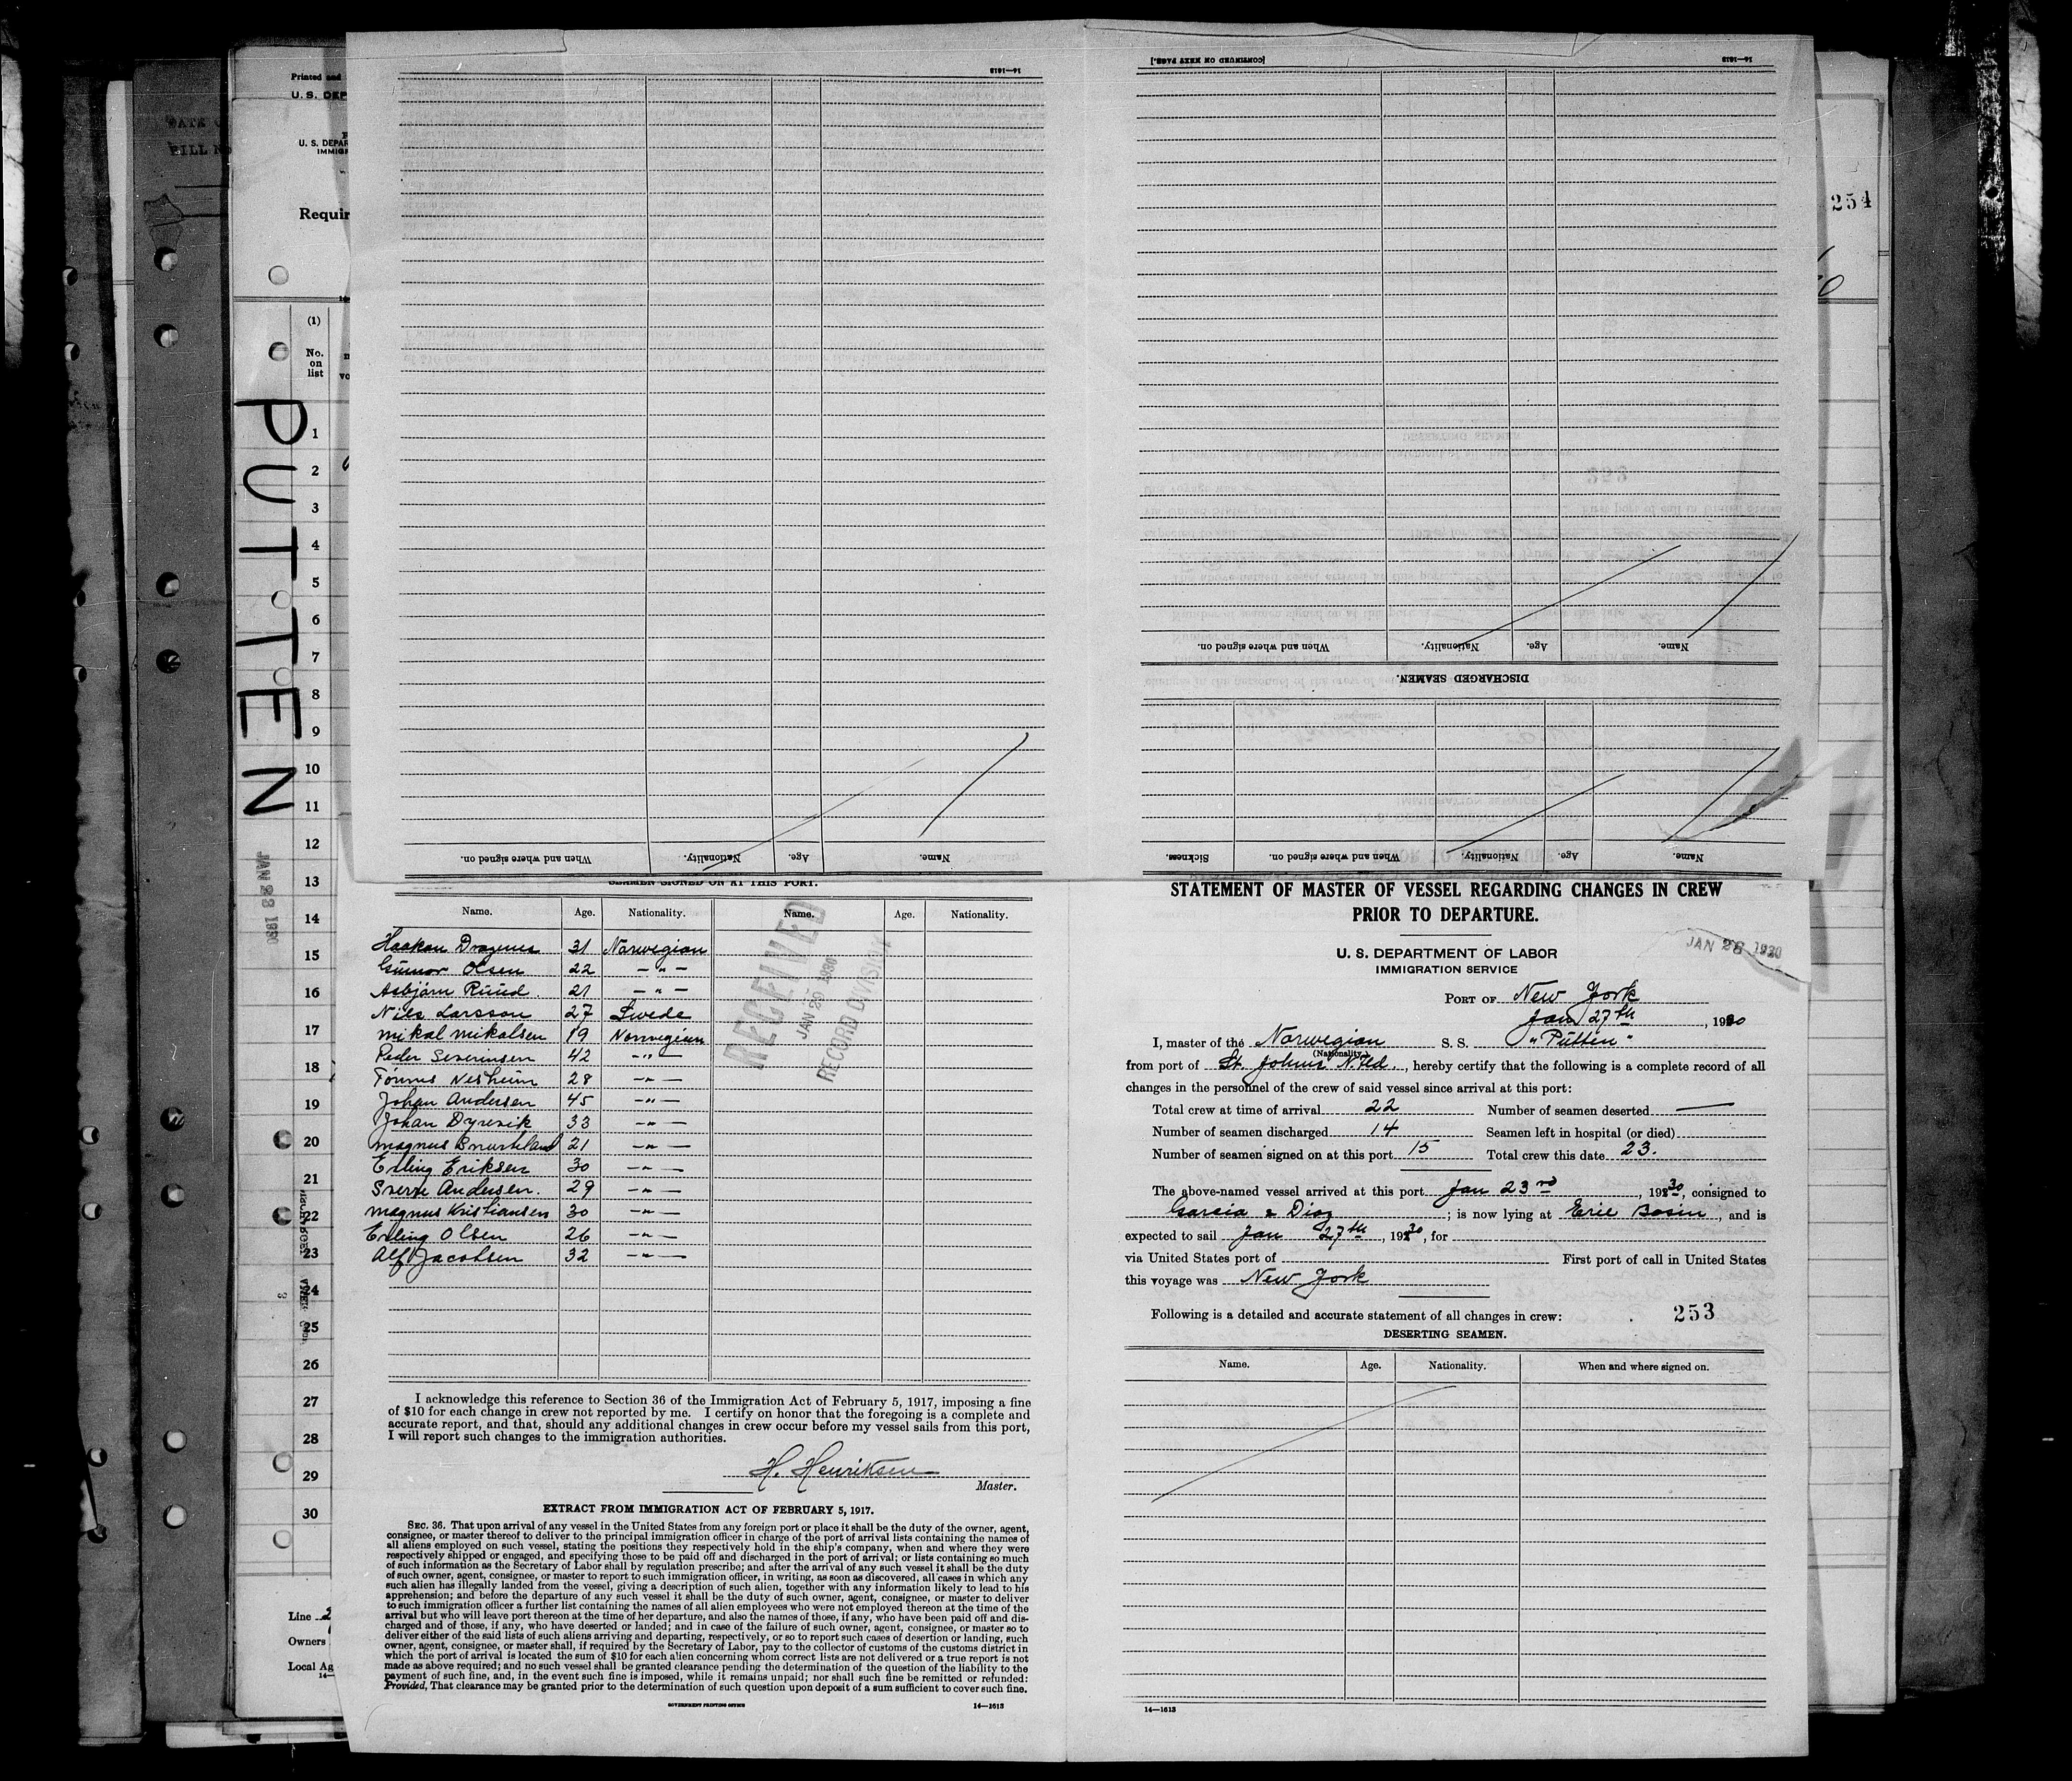 Printed and
U. S. DEP
DATE
FILL N
U. S. DEPAR
IMMIGR
Requir
(1)
No.
on
list
vo
PUTTEN
JAN 23 1930
1
2
3
4
5
6
7
8
9
10
11
12
13
14
15
16
17
18
19
20
21
22
23
24
25
26
27
28
29
30
Line
Owners
Local Ag
14—
14—1613
When and where signed on.
Nationality.
Age.
Name.
[CONTINUED ON NEXT PAGE.]
14—1613
When and where signed on.
Nationality.
Age.
Name.
DISCHARGED SEAMEN.
Sickness.
When and where signed on.
Nationality.
Age.
Name.
254
SEAMEN SIGNED ON AT THIS PORT.
Name. Age. Nationality. Name. Age. Nationality.
Haakon 31 Norwegian
Gunnar Olsen 22 — " —
Asbjørn Ruud. 21 — " —
Nils Larsson 27 Swede
Mikal Mikalsen 19 Norwegian
Peder Severinsen 42 — " —
Tønnes Nesheim 28 — " —
Johan Andersen 45 — " —
Johan Dyrevik 33 — " —
Magnus 21 — " —
Erling Eriksen 30 — " —
Sverre Andersen. 29 — " —
Magnus Kristiansen 30 — " —
Erling Olsen 26 — " —
Alf Jacobsen 32 — " —
RECEIVED
JAN 29 1930
RECORD DIVISION
I acknowledge this reference to Section 36 of the Immigration Act of February 5, 1917, imposing a fine
of $10 for each change in crew not reported by me. I certify on honor that the foregoing is a complete and
accurate report, and that, should any additional changes in crew occur before my vessel sails from this port,
I will report such changes to the immigration authorities.
H. Henriksen
Master.
EXTRACT FROM IMMIGRATION ACT OF FEBRUARY 5, 1917.
SEC. 36. That upon arrival of any vessel in the United States from any foreign port or place it shall be the duty of the owner, agent,
consignee, or master thereof to deliver to the principal immigration officer in charge of the port of arrival lists containing the names of
all aliens employed on such vessel, stating the positions they respectively hold in the ship's company, when and where they were
respectively shipped or engaged, and specifying those to be paid off and discharged in the port of arrival; or lists containing so much
of such information as the Secretary of Labor shall by regulation prescribe; and after the arrival of any such vessel it shall be the duty
of such owner, agent, consignee, or master to report to such immigration officer, in writing, as soon as discovered, all cases in which any
such alien has illegally landed from the vessel, giving a description of such alien, together with any information likely to lead to his
apprehension; and before the departure of any such vessel it shall be the duty of such owner, agent, consignee, or master to deliver
to such immigration officer a further list containing the names of all alien employees who were not employed thereon at the time of the
arrival but who will leave port thereon at the time of her departure, and also the names of those, if any, who have been paid off and dis-
charged and of those, if any, who have deserted or landed; and in case of the failure of such owner, agent, consignee, or master so to
deliver either of the said lists of such aliens arriving and departing, respectively, or so to report such cases of desertion or landing, such
owner, agent, consignee, or master shall, if required by the Secretary of Labor, pay to the collector of customs of the customs district in
which the port of arrival is located the sum of $10 for each alien concerning whom correct lists are not delivered or a true report is not
made as above required; and no such vessel shall be granted clearance pending the determination of the question of the liability to the
payment of such fine, and, in the event such fine is imposed, while it remains unpaid; nor shall such fine be remitted or refunded:
Provided, That clearance may be granted prior to the determination of such question upon deposit of a sum sufficient to cover such fine.
GOVERNMENT PRINTING OFFICE
14—1613
STATEMENT OF MASTER OF VESSEL REGARDING CHANGES IN CREW
PRIOR TO DEPARTURE.
U. S. DEPARTMENT OF LABOR
IMMIGRATION SERVICE
JAN 28 1930
PORT OF New York
Jan 27th, 1930
I, master of the Norwegian S. S. "Putten"
(Nationality.)
from port of St. Johns N.Fld., hereby certify that the following is a complete record of all
changes in the personnel of the crew of said vessel since arrival at this port:
Total crew at time of arrival 22 Number of seamen deserted —
Number of seamen discharged 14 Seamen left in hospital (or died)
Number of seamen signed on at this port 15 Total crew this date 23.
The above-named vessel arrived at this port Jan 23rd, 1930, consigned to
Garcia & Diaz; is now lying at Erie Basin, and is
expected to sail Jan 27th, 1930, for
via United States port of First port of call in United States
this voyage was New York
Following is a detailed and accurate statement of all changes in crew:
253
DESERTING SEAMEN.
Name. Age. Nationality. When and where signed on.
14—1613